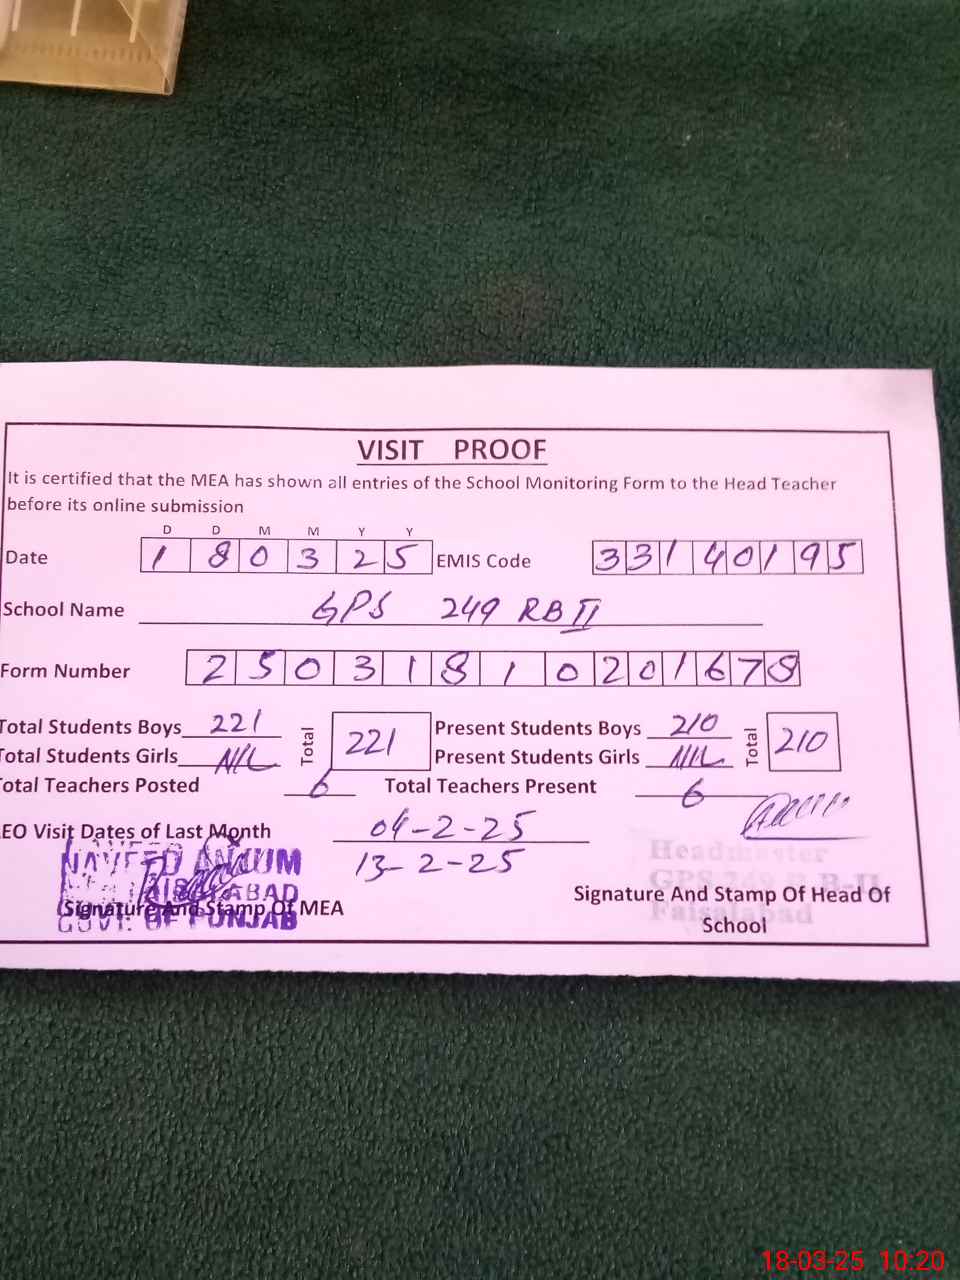 VISIT PROOF
It is certified that the MEA has shown all entries of the School Monitoring Form to the Head Teacher
before its online submission
D D M M Y Y
Date 1 8 0 3 2 5 EMIS Code 3 3 1 4 0 1 9 5
School Name GPS 249 RB II
Form Number 2 5 0 3 1 8 1 0 2 0 1 6 7 8
Total Students Boys 221 Total 221 Present Students Boys 210 Total 210
Total Students Girls NIL Present Students Girls NIL
Total Teachers Posted 6 Total Teachers Present 6
EO Visit Dates of Last Month 04-2-25
13-2-25
NAVEED ANJUM
FAISALABAD
GOVT. OF PUNJAB
Signature And Stamp Of MEA
Headmaster
GPS 249 R.B-II
Faisalabad
Signature And Stamp Of Head Of
School
18-03-25 10:20